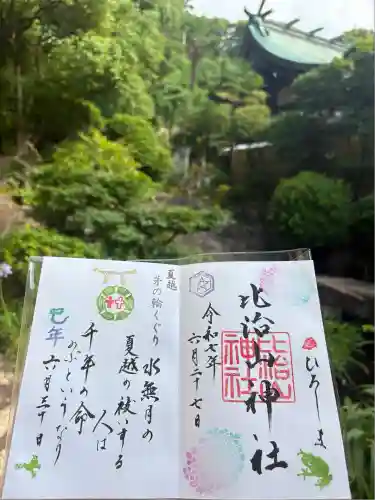 ひろしま
比治山神社
比治山
神社
令和七年
六月二十七日
夏越
茅の輪くぐり
水無月の
夏越の祓いする
人は
千年の命
のぶというなり
六月三十日
巳年